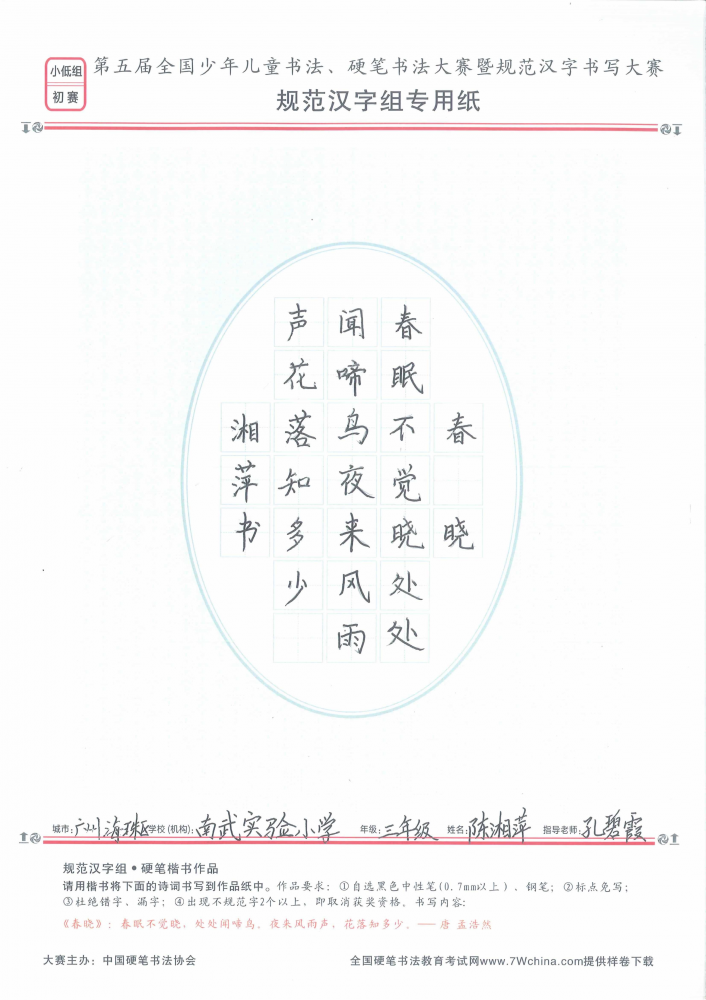 小低组
初赛
第五届全国少年儿童书法、硬笔书法大赛暨规范汉字书写大赛
规范汉字组专用纸
春 晓
春眠不觉晓处处
闻啼鸟夜来风雨
声花落知多少
湘萍书
城市:广州海珠区 学校(机构):南武实验小学 年级:三年级 姓名:陈湘萍 指导老师:孔碧霞
规范汉字组•硬笔楷书作品
请用楷书将下面的诗词书写到作品纸中。作品要求:①自选黑色中性笔(0.7mm以上)、钢笔;②标点免写;
③杜绝错字、漏字;④出现不规范字2个以上,即取消获奖资格。书写内容:
《春晓》:春眠不觉晓,处处闻啼鸟。夜来风雨声,花落知多少。——唐 孟浩然
大赛主办:中国硬笔书法协会 全国硬笔书法教育考试网www.7Wchina.com提供样卷下载